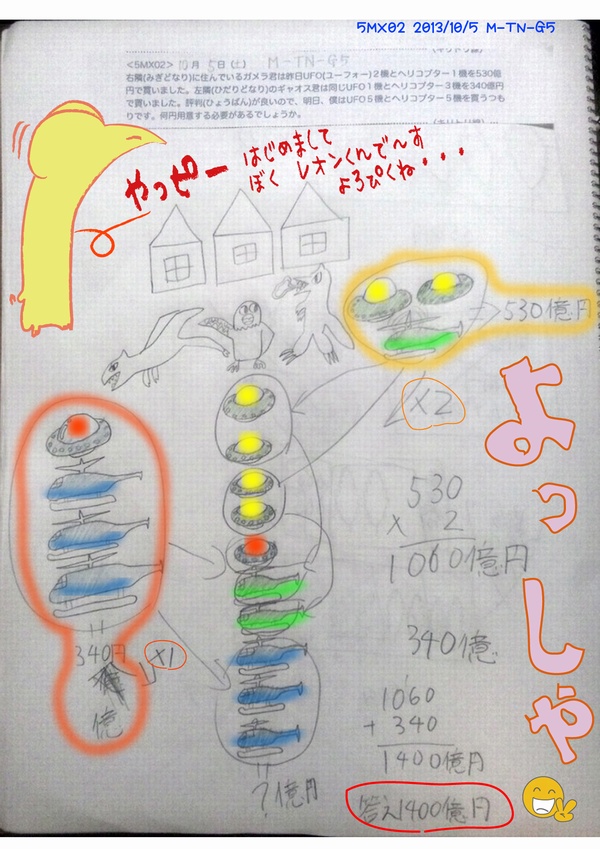 5MX02 2013/10/5 M-TN-G5
<5MX02> 10月 5日(土) M-TN-G5
右隣(みぎどなり)に住んでいるガメラ君は昨日UFO(ユーフォー)2機とヘリコプター1機を530億
円で買いました。左隣(ひだりどなり)のギャオス君は同じUFO1機とヘリコプター3機を340億円
で買いました。評判(ひょうばん)が良いので、明日、僕はUFO5機とヘリコプター5機を買うつも
りです。何円用意する必要があるでしょうか。
やっピー
はじめまして
ぼく レオンくんでんす
よろぴくね・・・
=>530億円
×2
よっしゃ
530
× 2
1060億円
340円
億
×1
340億
1060
+ 340
1400億円
?億円
答え1400億円